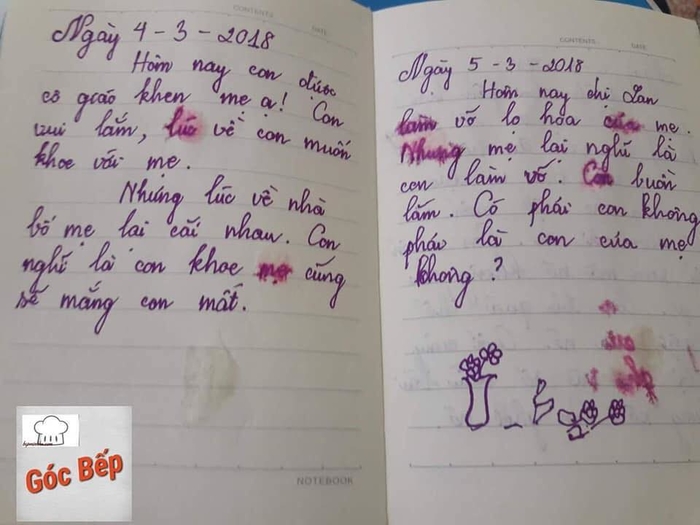 CONTENTS
DATE
Ngày 4 - 3 - 2018
Hôm nay con được
cô giáo khen mẹ ạ! Con
vui lắm, lúc về con muốn
khoe với mẹ.
Nhưng lúc về nhà
bố mẹ lại cãi nhau. Con
nghĩ là con khoe mẹ cũng
sẽ mắng con mất.
NOTEBOOK
Góc Bếp
CONTENTS
DATE
Ngày 5 - 3 - 2018
Hôm nay chị Lan
làm vỡ lọ hoa của mẹ.
Nhưng mẹ lại nghĩ là
con làm vỡ. Con buồn
lắm. Có phải con không
phải là con của mẹ
không?